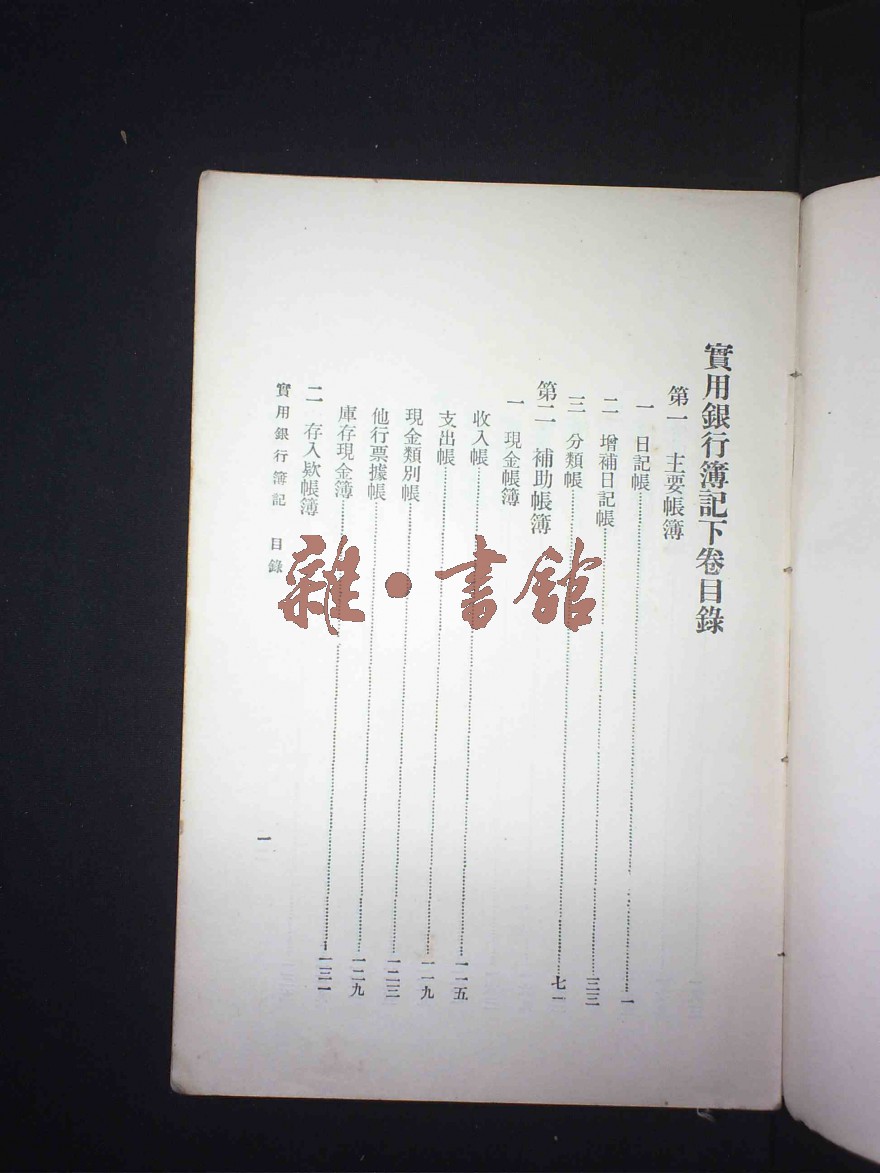 實用銀行簿記下卷目錄
第一 主要帳簿
一 日記帳……一
二 增補日記帳……三三
三 分類帳……七一
第二 補助帳簿
一 現金帳簿
收入帳……一一五
支出帳……一一九
現金類別帳……一二三
他行票據帳……一二九
庫存現金簿……一三一
二 存入欵帳簿
實用銀行簿記 目錄
一
雜·書館